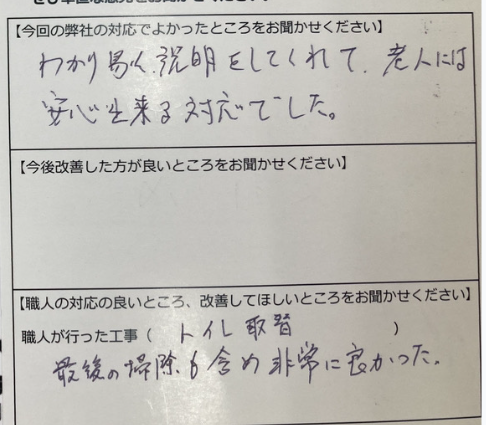 【今回の弊社の対応でよかったところをお聞かせください】
わかり易く説明をしてくれて、老人には
安心出来る対応でした。
【今後改善した方が良いところをお聞かせください】
【職人の対応の良いところ、改善してほしいところをお聞かせください】
職人が行った工事（ トイレ取替 ）
最後の掃除も含め非常に良かった。